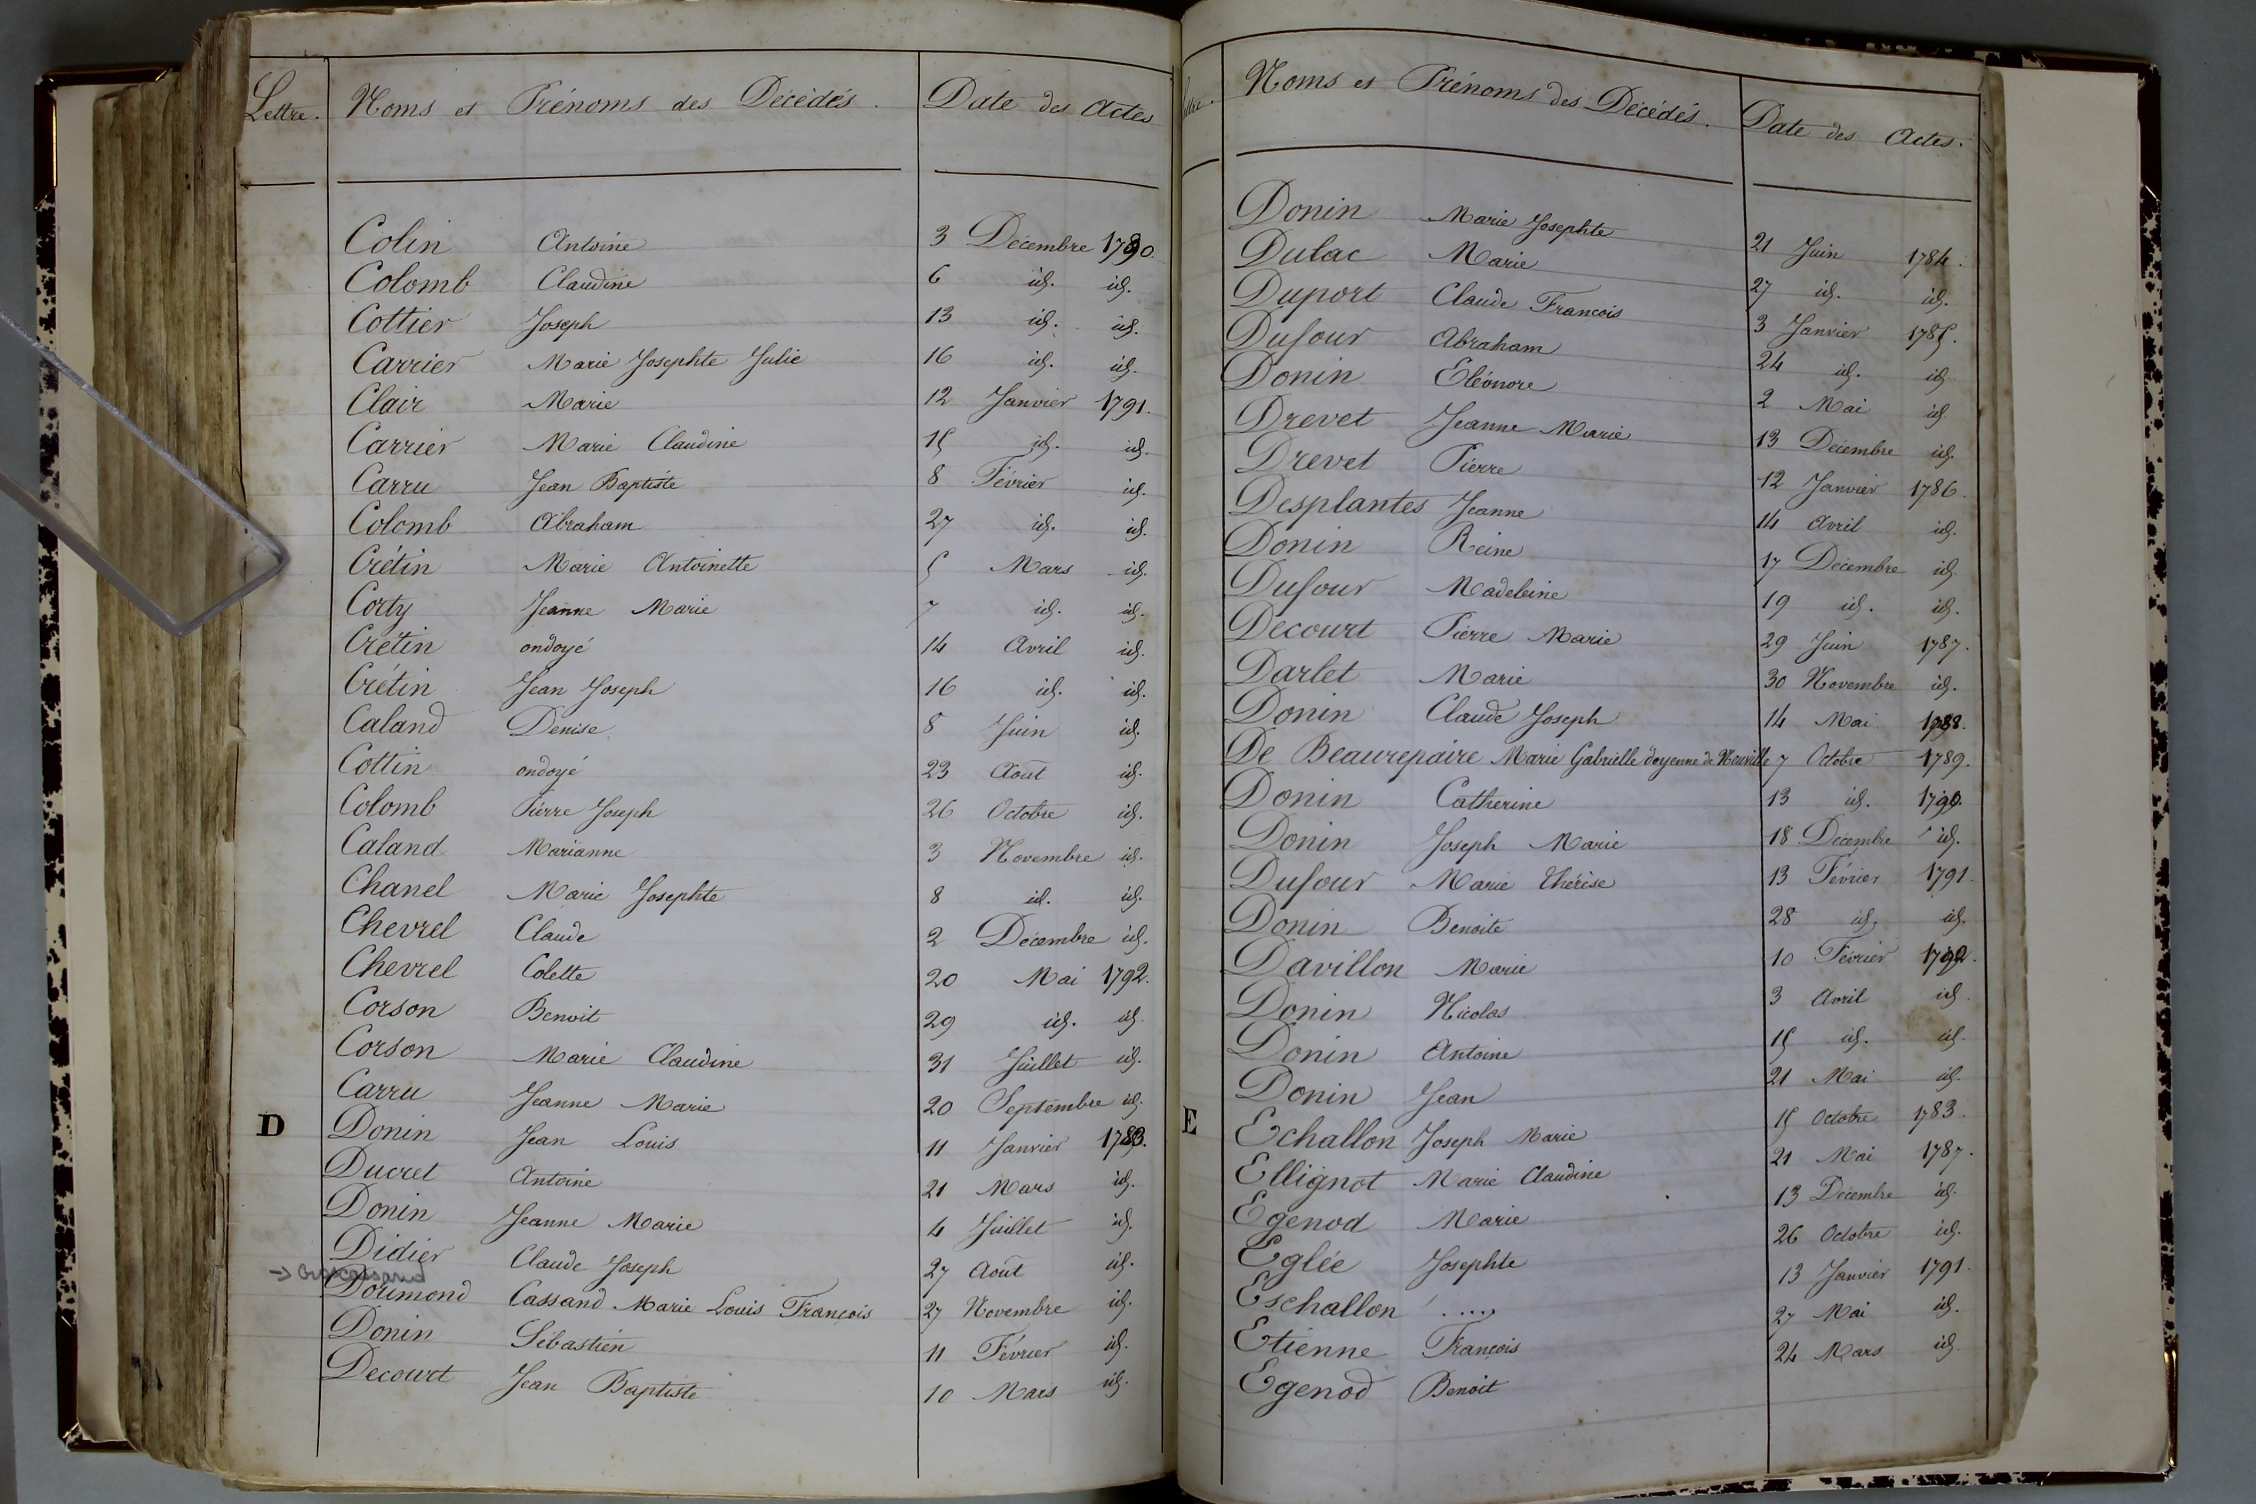 Lettre. Noms et Prénoms des Décédés. Date des Actes
Colin Antoine 3 Décembre 1790.
Colomb Claudine 6 id. id.
Cottier Joseph 13 id. id.
Carrier Marie Josephte Julie 16 id. id.
Clair Marie 12 Janvier 1791.
Carrier Marie Claudine 15 id. id.
Carru Jean Baptiste 8 Février id.
Colomb Abraham 27 id. id.
Crétin Marie Antoinette 5 Mars id.
Corty Jeanne Marie 7 id. id.
Crétin ondoyé 14 Avril id.
Crétin Jean Joseph 16 id. id.
Caland Denise 8 Juin id.
Cottin ondoyé 23 Août id.
Colomb Pierre Joseph 26 Octobre id.
Caland Marianne 3 Novembre id.
Chanel Marie Josephte 8 id. id.
Chevrel Claude 2 Décembre id.
Chevrel Colette 20 Mai 1792.
Corson Benoit 29 id. id.
Corson Marie Claudine 31 Juillet id.
Carru Jeanne Marie 20 Septembre id.
D Donin Jean Louis 11 Janvier 1783.
Ducret Antoine 21 Mars id.
Donin Jeanne Marie 4 Juillet id.
Didier Claude Joseph 27 Août id.
Dorimond Cassand Marie Louis François 27 Novembre id.
Donin Sébastien 11 Février id.
Decourt Jean Baptiste 10 Mars id.
Noms et Prénoms des Décédés. Date des Actes.
Donin Marie Josephte 21 Juin 1784.
Dulac Marie 27 id. id.
Duport Claude François 3 Janvier 1785.
Dufour Abraham 24 id. id.
Donin Eléonore 2 Mai id
Drevet Jeanne Marie 13 Décembre id.
Drevet Pierre 12 Janvier 1786.
Desplantes Jeanne 14 Avril id.
Donin Reine 17 Décembre id.
Dufour Madeleine 19 id. id.
Decourt Pierre Marie 29 Juin 1787.
Darlet Marie 30 Novembre id.
Donin Claude Joseph 14 Mai 1788.
De Beaurepaire Marie Gabrielle doyenne de Neuville 7 Octobre 1789.
Donin Catherine 13 id. 1790.
Donin Joseph Marie 18 Décembre id.
Dufour Marie Thérèse 13 Février 1791.
Donin Benoite 28 id. id.
Davillon Marie 10 Février 1792.
Donin Nicolas 3 Avril id.
Donin Antoine 15 id. id.
Donin Jean 21 Mai id.
E Echallon Joseph Marie 15 Octobre 1783.
Ellignot Marie Claudine 21 Mai 1787.
Egenod Marie 13 Décembre id.
Eglée Josephte 26 Octobre id.
Eschallon ..... 13 Janvier 1791.
Etienne François 27 Mai id.
Egenod Benoit 24 Mars id.